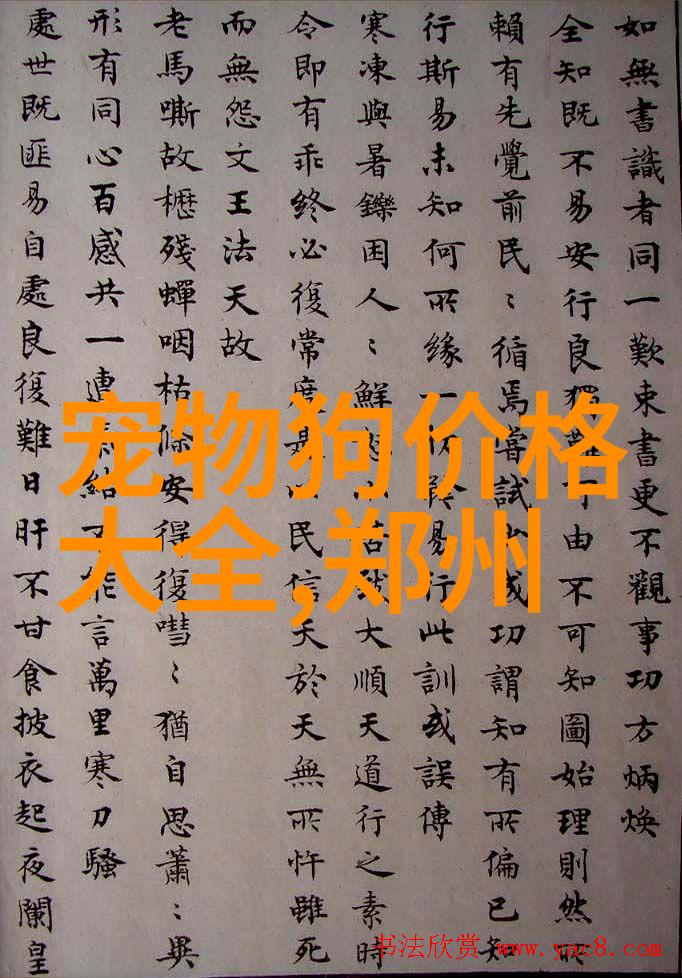 如無書識者同一歎束書更不觀事功方炳煥
全知既不易安行良獨難可由不可知圖始理則然所
賴有先覺前民〻循焉嘗試少或功謂知有所偏已知
行斯易未知何所緣一難易行此訓或誤傳
寒凍與暑鑠困人〻鮮大順天道行之素時
令即有乖終必復常度是以民信天於天無所忤雖死
而無怨文王法天故
老馬嘶故櫪殘蟬咽枯條安得復嘒〻猶自思蕭〻異
形有同心百感共一連結不能言萬里寒刀騷
處世既匪易自處良復難日旰不甘食披衣起夜闌皇
宠物狗价格
大全,郑州
书法欣赏 www.yac8.com